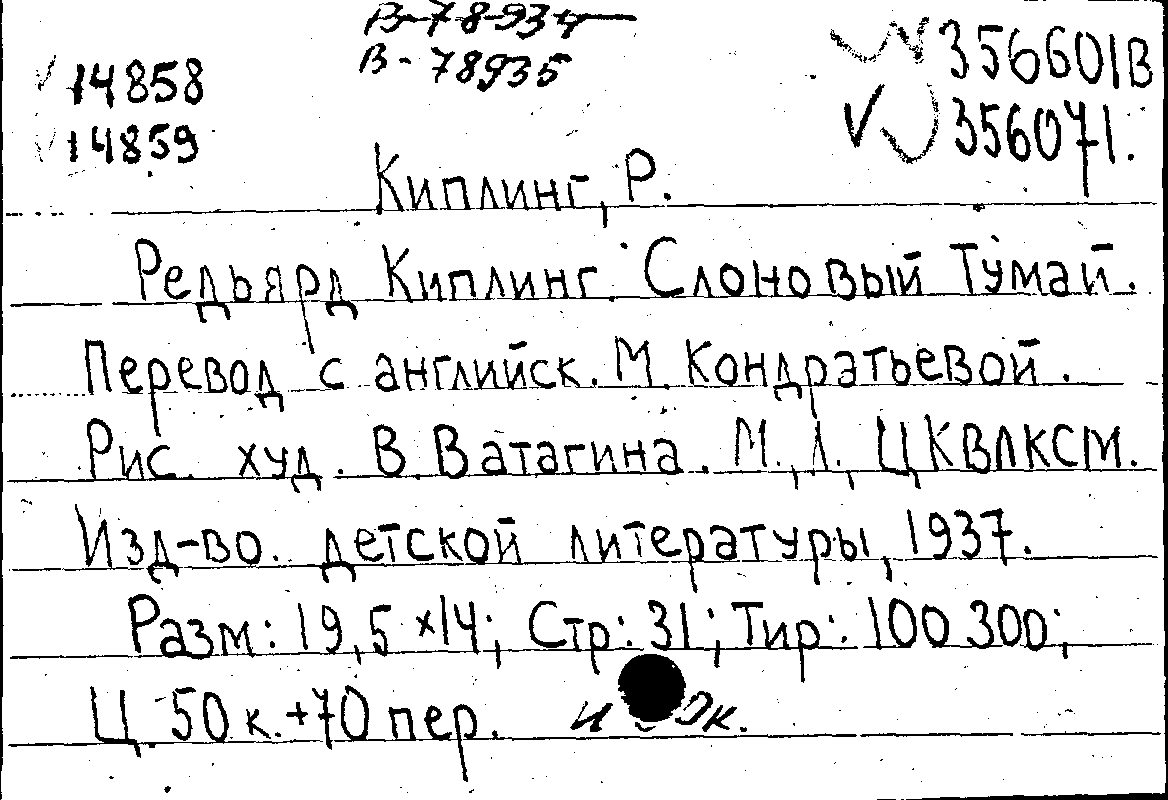 В-78934
В-78935
14858
14859
356601В
356071.
Киплинг, Р.
Редьярд Киплинг. Слоновый Тумай.
Перевод с английск. М. Кондратьевой.
Рис. худ. В. Ватагина. М., Л., ЦКВЛКСМ.
Изд-во. детской литературы, 1937.
Разм: 19,5 х14; Стр: 31; Тир: 100 300;
Ц. 50 к. +70 пер. и